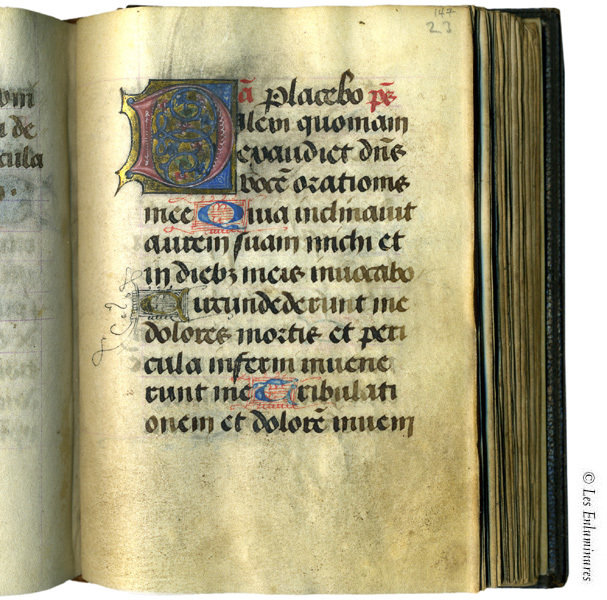 de
cula
147
23
ā Placebo ps̄
Dilexi quoniam
exaudiet dn̄s
vocē orationis
mee Quia inclinauit
aurem suam michi et
in diebꝫ meis inuocabo
Circundederunt me
dolores mortis et peri
cula inferni inuene
runt me Tribulati
onem et dolorē inueni
© Les Enluminares